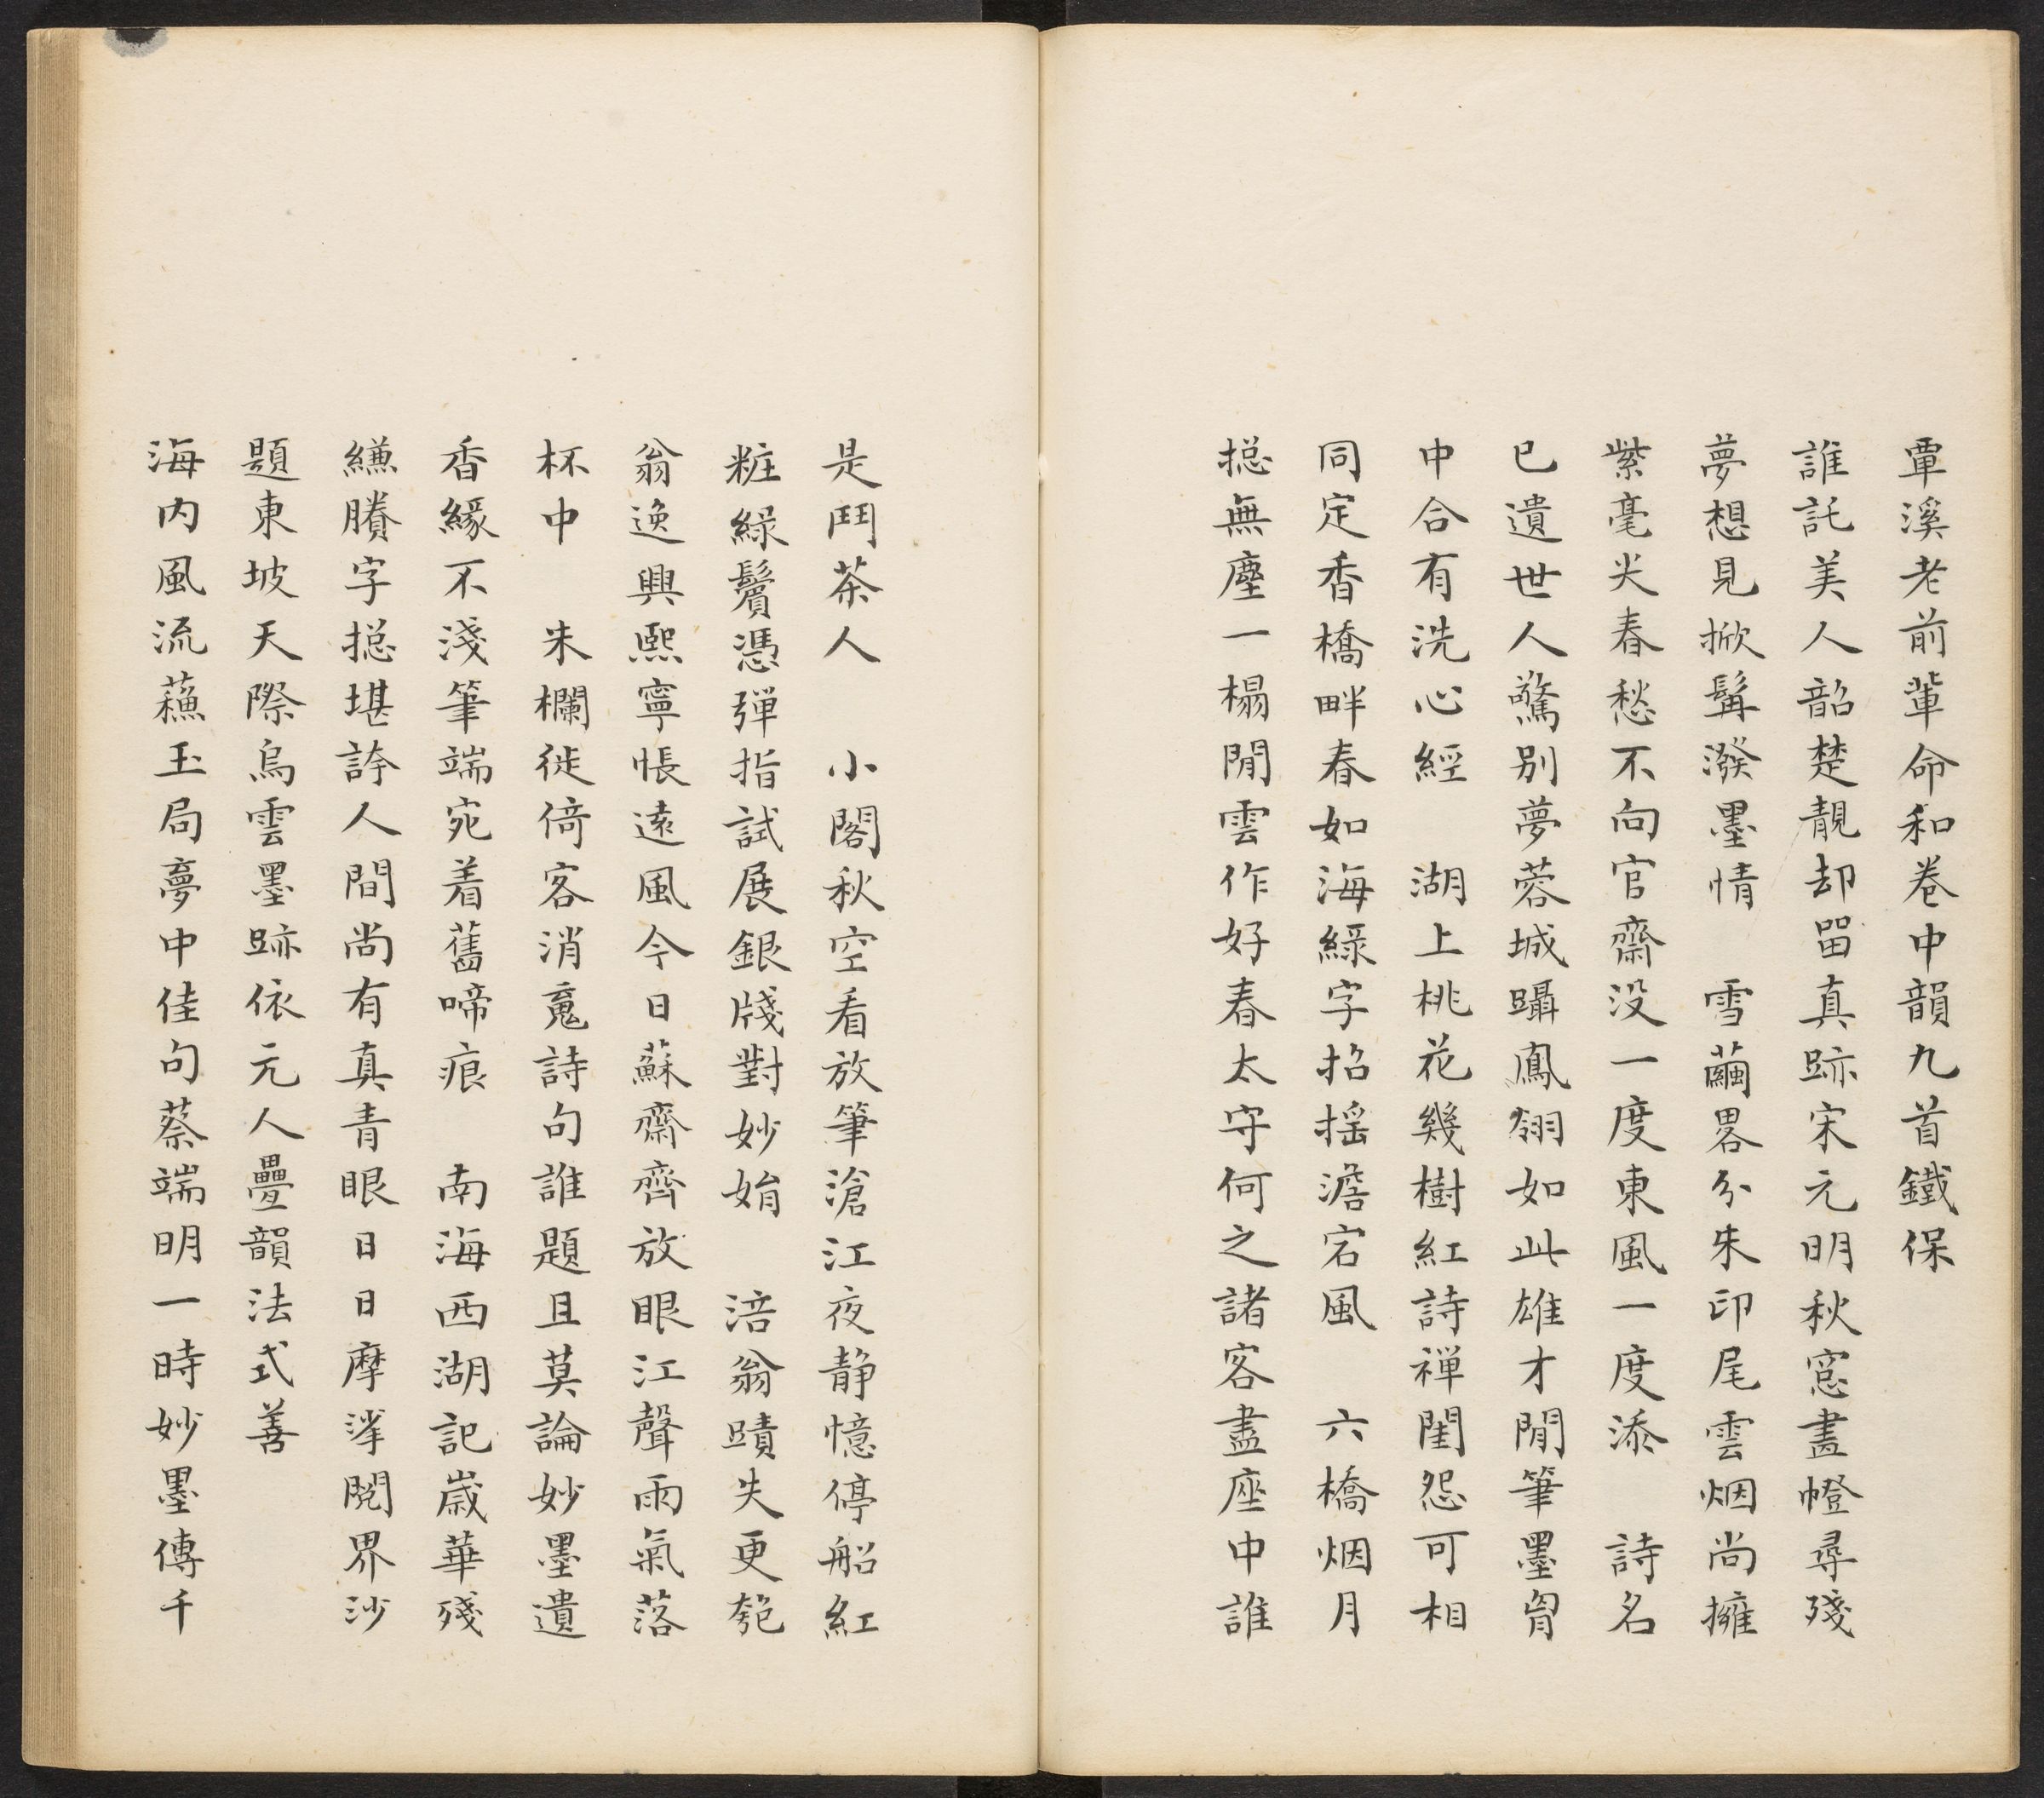 覃溪老前軰命和卷中韻九首鐵保
誰託美人韶楚靚却畱真跡宋元明秋窻畫燈尋殘
夢想見掀髯潑墨情　雪繭畧分朱印尾雲烟尚擁
紫毫尖春愁不向官齋没一度東風一度添　詩名
已遺世人驚别夢蓉城躡鳳翎如此雄才閒筆墨胷
中合有洗心經　湖上桃花幾樹紅詩禅閨怨可相
同定香橋畔春如海綠字招搖澹宕風　六橋烟月
揔無塵一榻閒雲作好春太守何之諸客盡座中誰
是鬥茶人　小閣秋空看放筆滄江夜静憶停船紅
粧綠鬢憑弹指試展銀牋對妙姢　涪翁蹟失更乾
翁逸興熙寧悵遠風今日蘇齋齊放眼江聲雨氣落
杯中　朱欄徙倚客消䰟詩句誰題且莫論妙墨遺
香緣不淺筆端宛着舊啼痕　南海西湖記嵗華殘
縑賸字揔堪誇人間尚有真青眼日日摩挲閱界沙
題東坡天際烏雲墨跡依元人疊韻法式善
海内風流蘓玉局夢中佳句蔡端明一時妙墨傳千